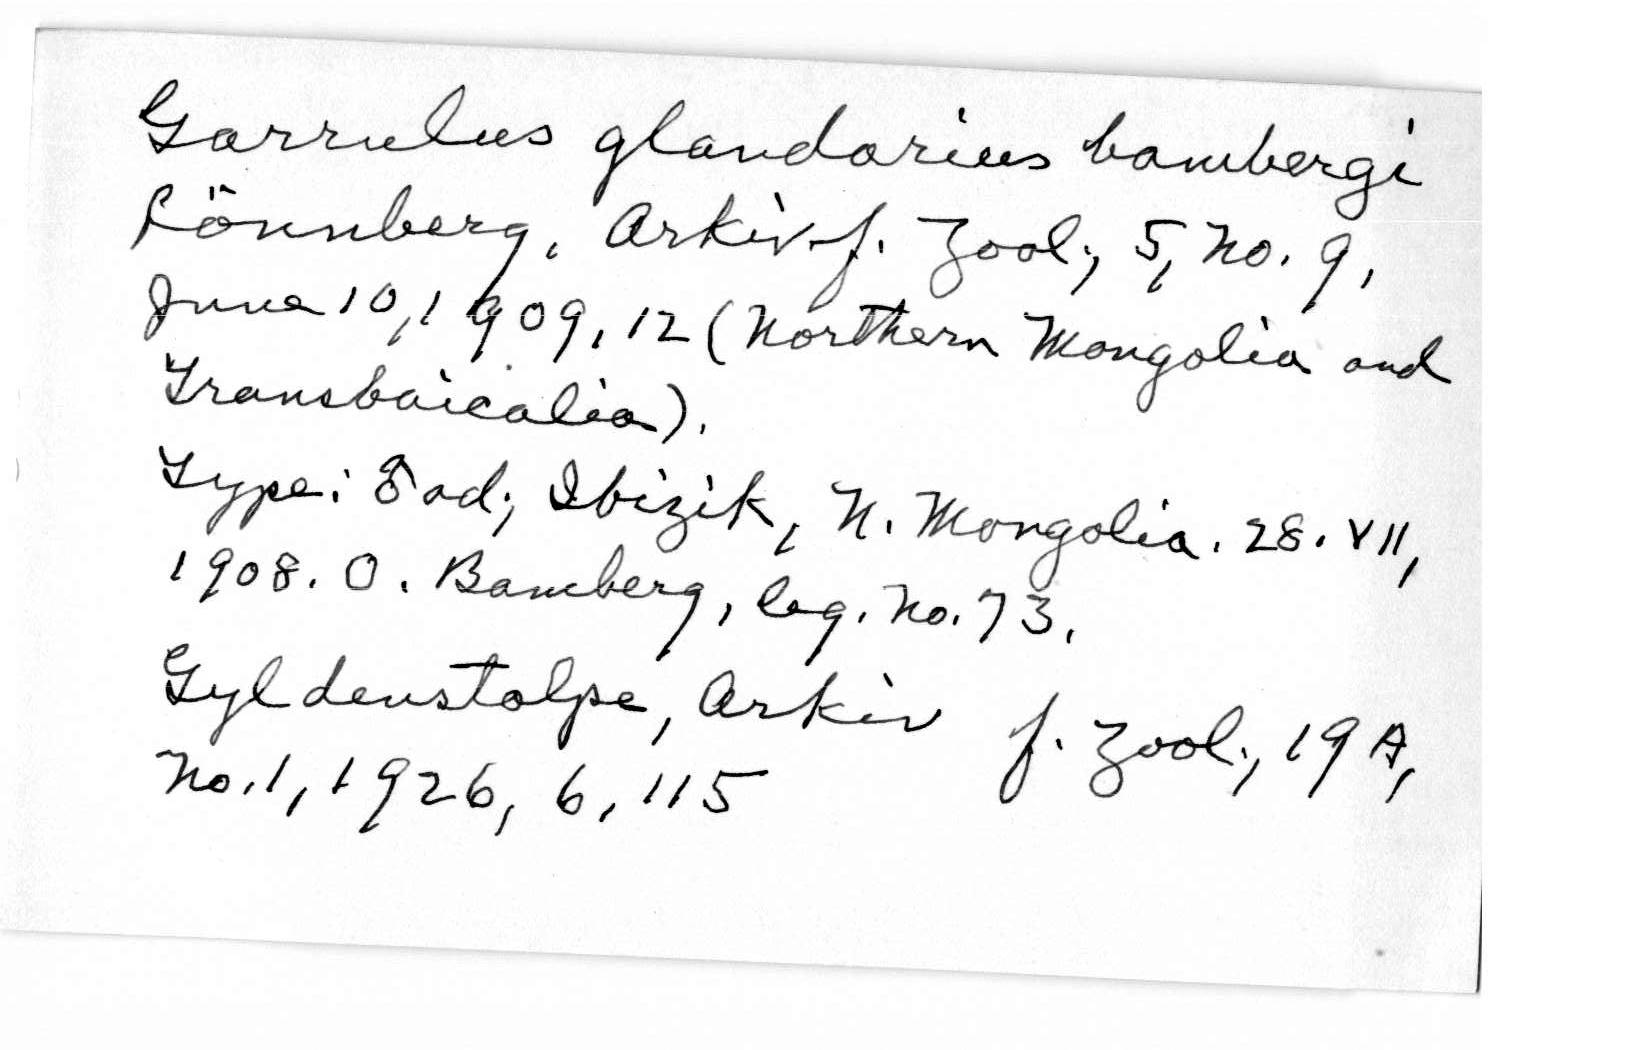 Garrulus glandarius bambergi
Lönnberg, Arkiv f. Zool., 5, No. 9,
June 10, 1909, 12 (Northern Mongolia and
Transbaicalia).
Type: ♂ ad; Ibizik, N. Mongolia. 28. VII,
1908. O. Bamberg, leg. No. 73.
Gyldenstolpe, Arkiv f. Zool., 19 A,
No. 1, 1926, 6, 115